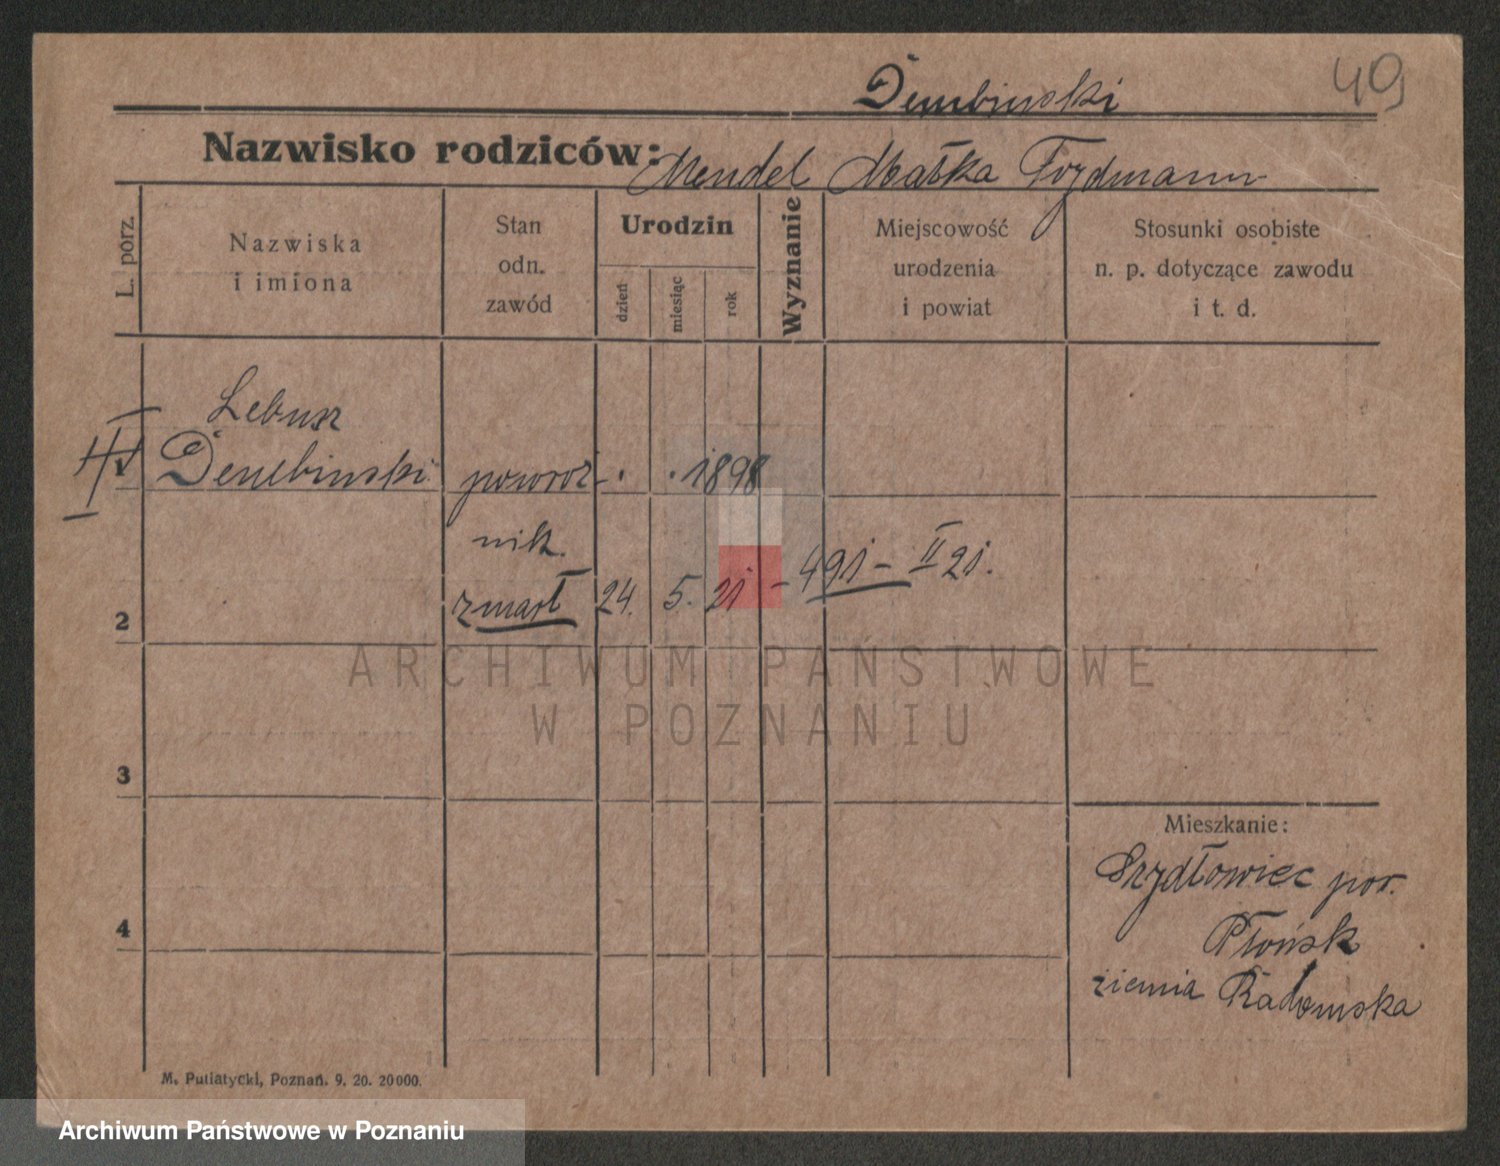 49
Dembinski
Nazwisko rodziców: Mendel Małka Frydmann
L. porz.
Nazwiska
i imiona
Stan
odn.
zawód
Urodzin
dzień
miesiąc
rok
Wyznanie
Miejscowość
urodzenia
i powiat
Stosunki osobiste
n. p. dotyczące zawodu
i t. d.
Dembinski powroź- . . 1898
nik.
2 zmarł 24. 5. 21 - 491 - II 21.
3
4
Mieszkanie:
Szydłowiec pow.
Płońsk
ziemia Radomska
M. Putiatycki, Poznań. 9. 20. 20000.
ARCHIWUM PAŃSTWOWE
W POZNANIU
Archiwum Państwowe w Poznaniu